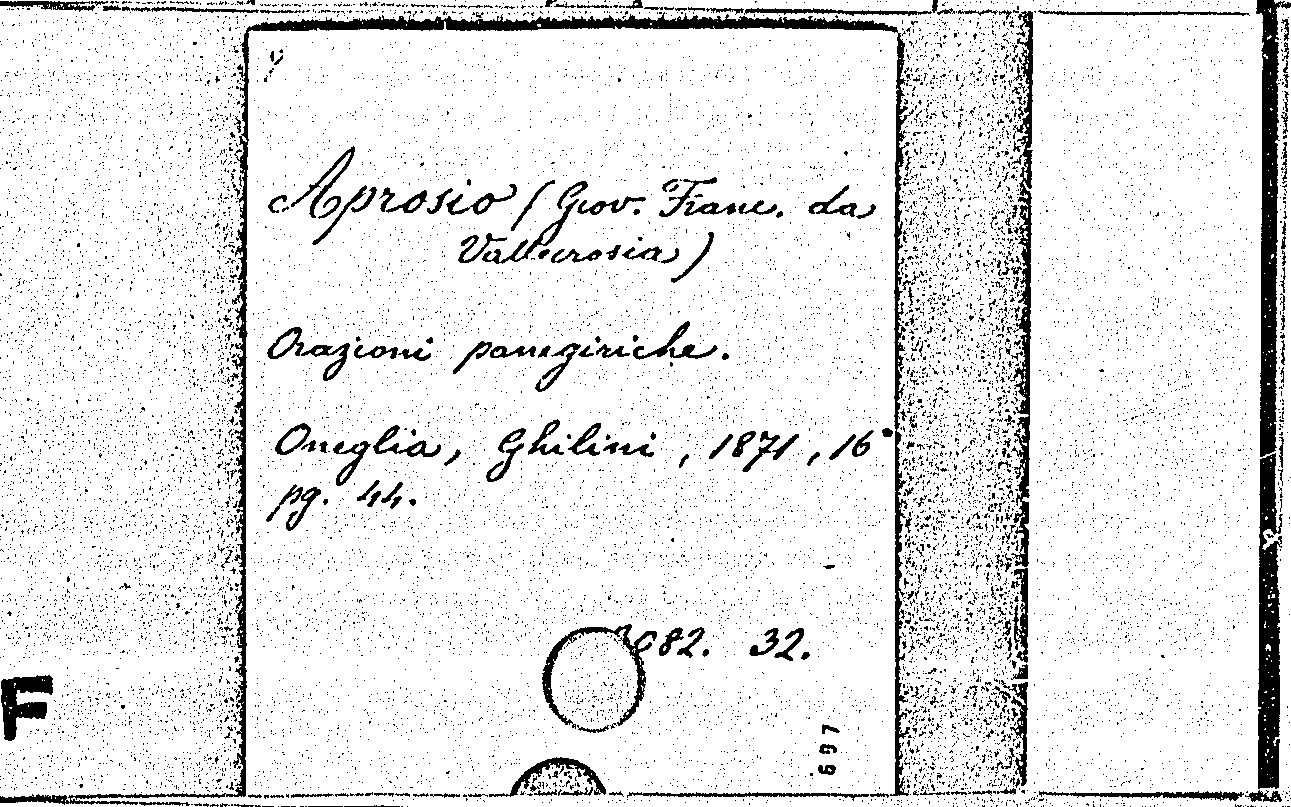 Aprosio (Giov. Franc. da
Vallecrosia)
Orazioni panegiriche.
Oneglia, Ghilini, 1871, 16°
pg. 44.
082. 32.
697
F